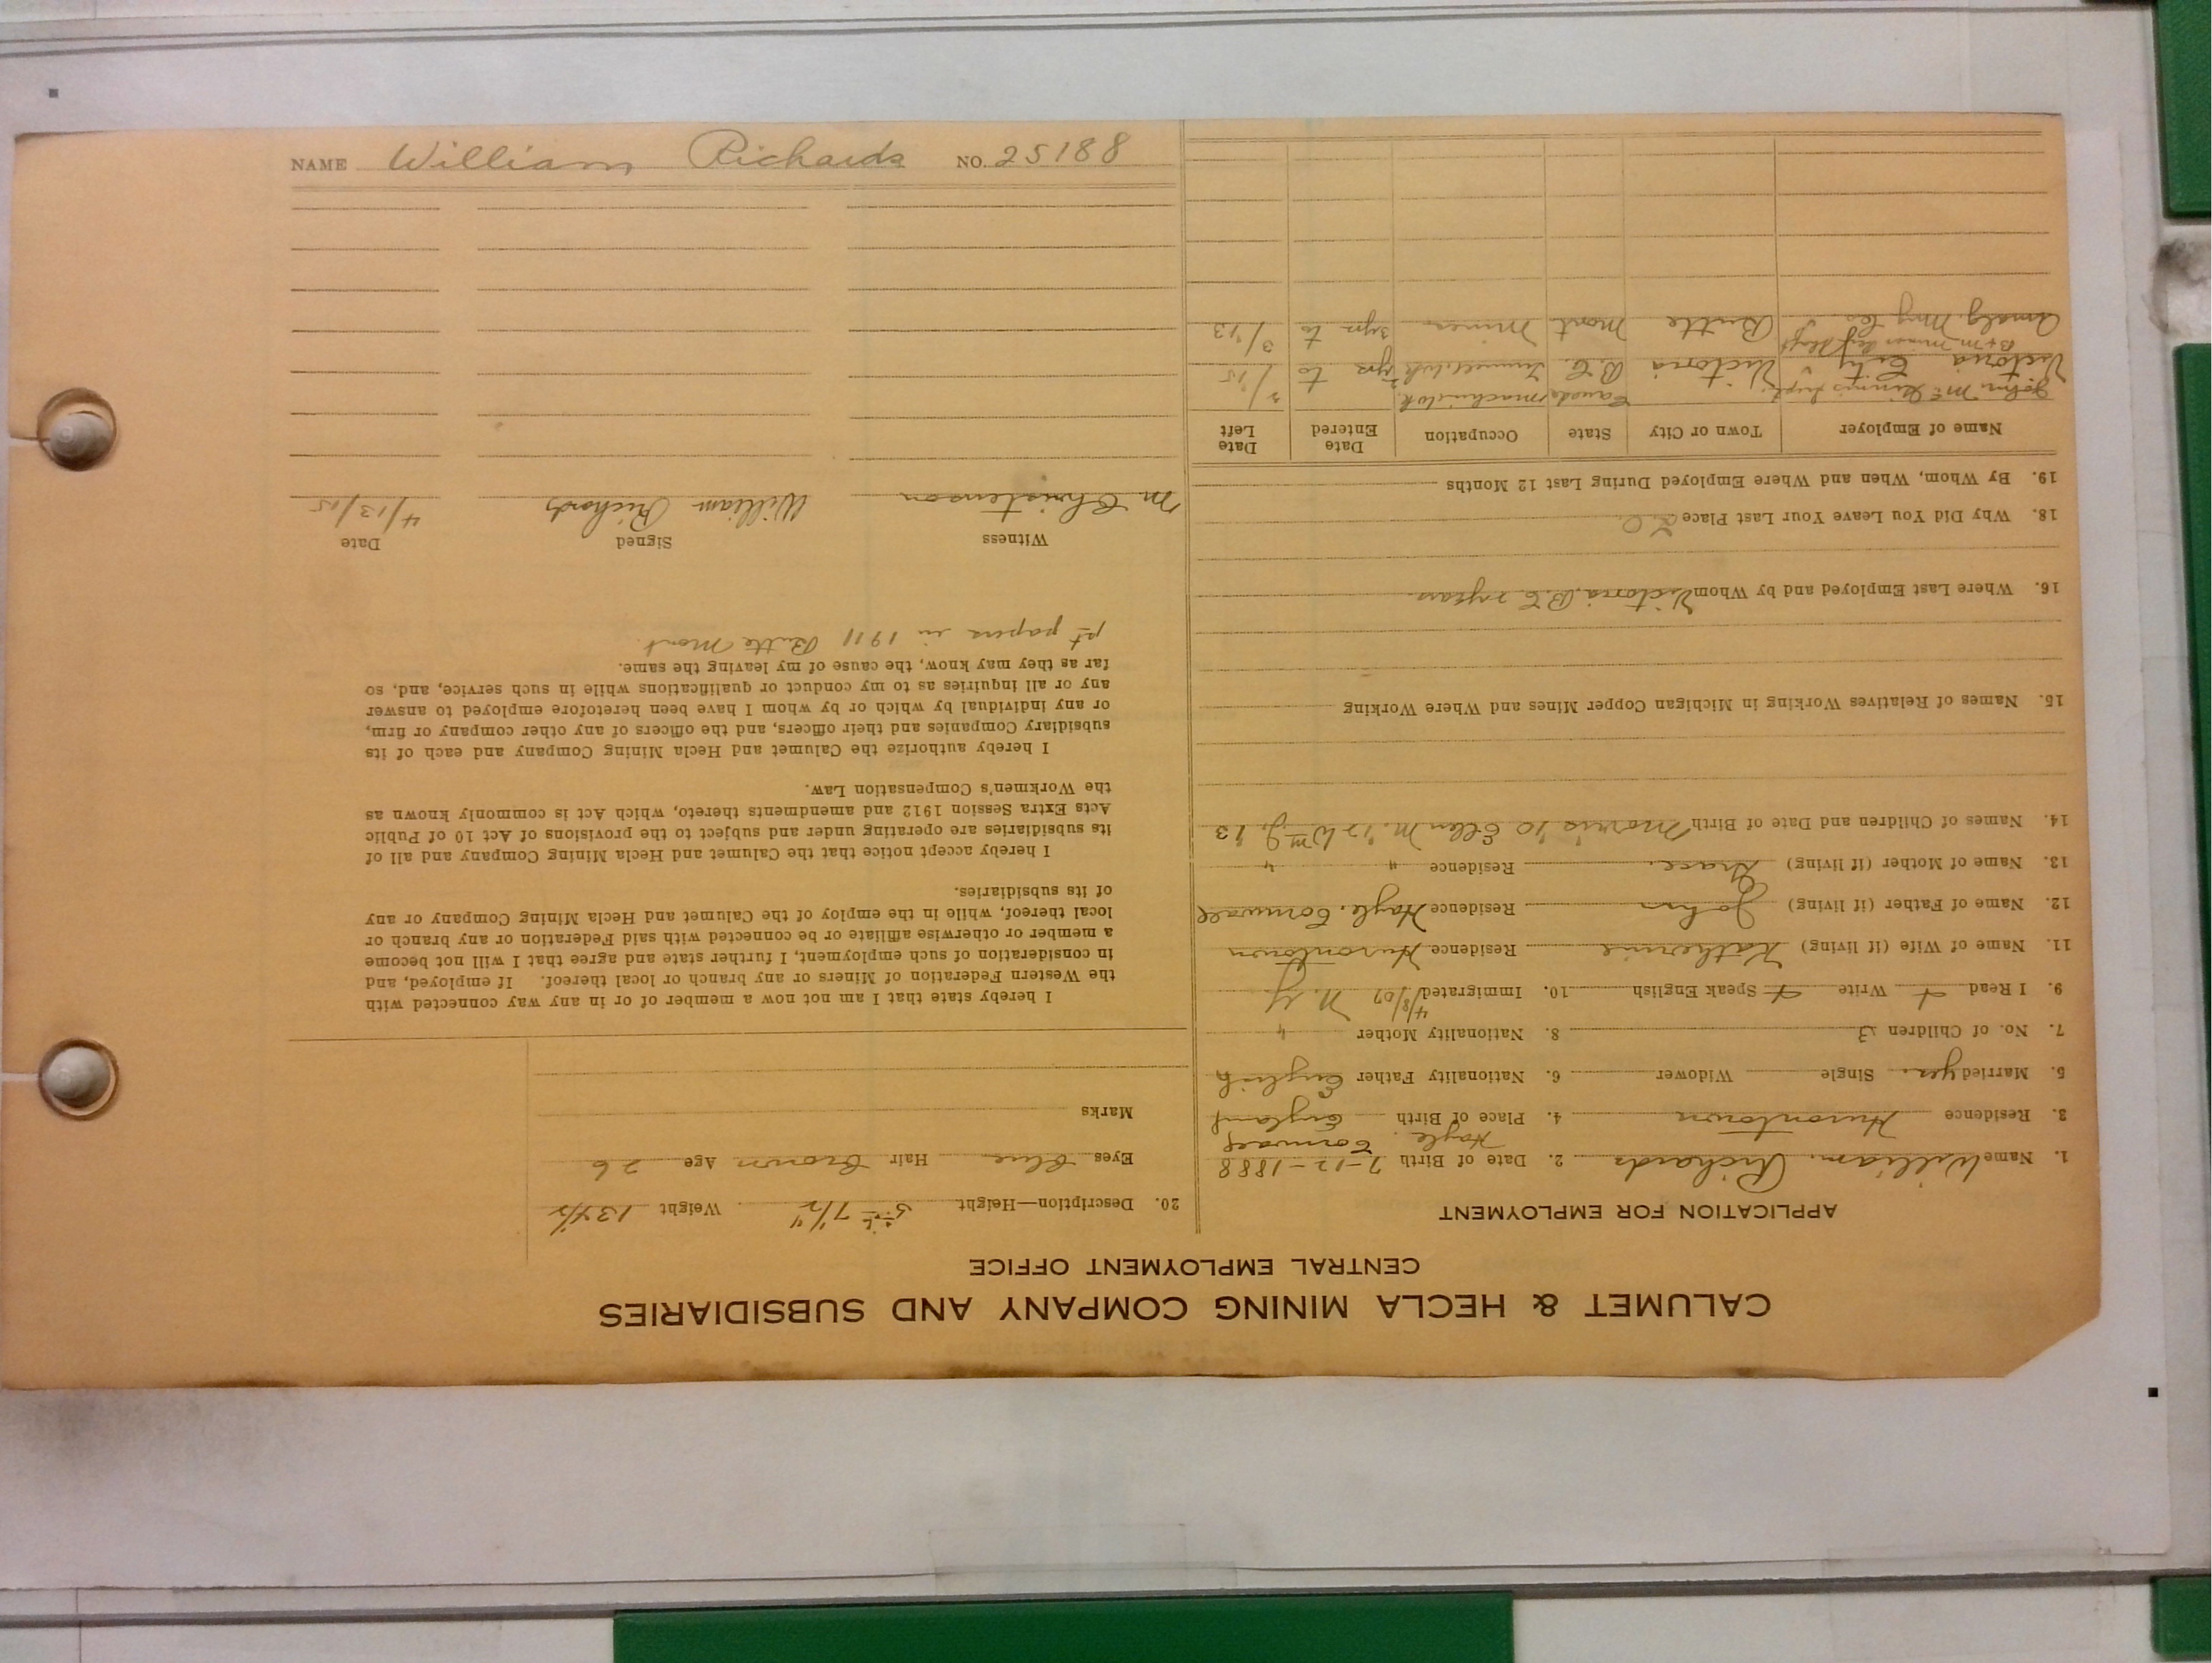 NAME William Richards NO. 25188
CALUMET & HECLA MINING COMPANY AND SUBSIDIARIES
CENTRAL EMPLOYMENT OFFICE
APPLICATION FOR EMPLOYMENT
1. Name William Richards 2. Date of Birth 7-12-1888
Hayle. Cornwall
3. Residence Hurontown 4. Place of Birth England
5. Married yes. Single Widower 6. Nationality Father English
7. No. of Children 3 8. Nationality Mother "
9. I Read Write Speak English 10. Immigrated 4/8/07 N. Y.
11. Name of Wife (if living) Katherine Residence Hurontown
12. Name of Father (if living) John Residence Hayle. Cornwall
13. Name of Mother (if living) Grace. Residence " "
14. Names of Children and Date of Birth Morris '10 Ellen M. '12 Wm J. '13
15. Names of Relatives Working in Michigan Copper Mines and Where Working
16. Where Last Employed and by Whom Victoria, B.C. 2 years.
18. Why Did You Leave Your Last Place
19. By Whom, When and Where Employed During Last 12 Months
Name of Employer Town or City State Occupation Date Entered Date Left
John Canada machinist
Victoria City Victoria B.C. 2 yrs to /15
Amalg. Mng Co Butte Mont Miner 3 yrs to 3/13
20. Description—Height 5 ft 7 1/4 Weight
Eyes Blue Hair Brown Age 26
Marks
I hereby state that I am not now a member of or in any way connected with
the Western Federation of Miners or any branch or local thereof. If employed, and
in consideration of such employment, I further state and agree that I will not become
a member or otherwise affiliate or be connected with said Federation or any branch or
local thereof, while in the employ of the Calumet and Hecla Mining Company or any
of its subsidiaries.
I hereby accept notice that the Calumet and Hecla Mining Company and all of
its subsidiaries are operating under and subject to the provisions of Act 10 of Public
Acts Extra Session 1912 and amendments thereto, which Act is commonly known as
the Workmen's Compensation Law.
I hereby authorize the Calumet and Hecla Mining Company and each of its
subsidiary Companies and their officers, and the officers of any other company or firm,
or any individual by which or by whom I have been heretofore employed to answer
any or all inquiries as to my conduct or qualifications while in such service, and, so
far as they may know, the cause of my leaving the same.
1st papers in 1911 Butte Mont.
Witness Signed Date
M Christenson William Richards 4/13/15